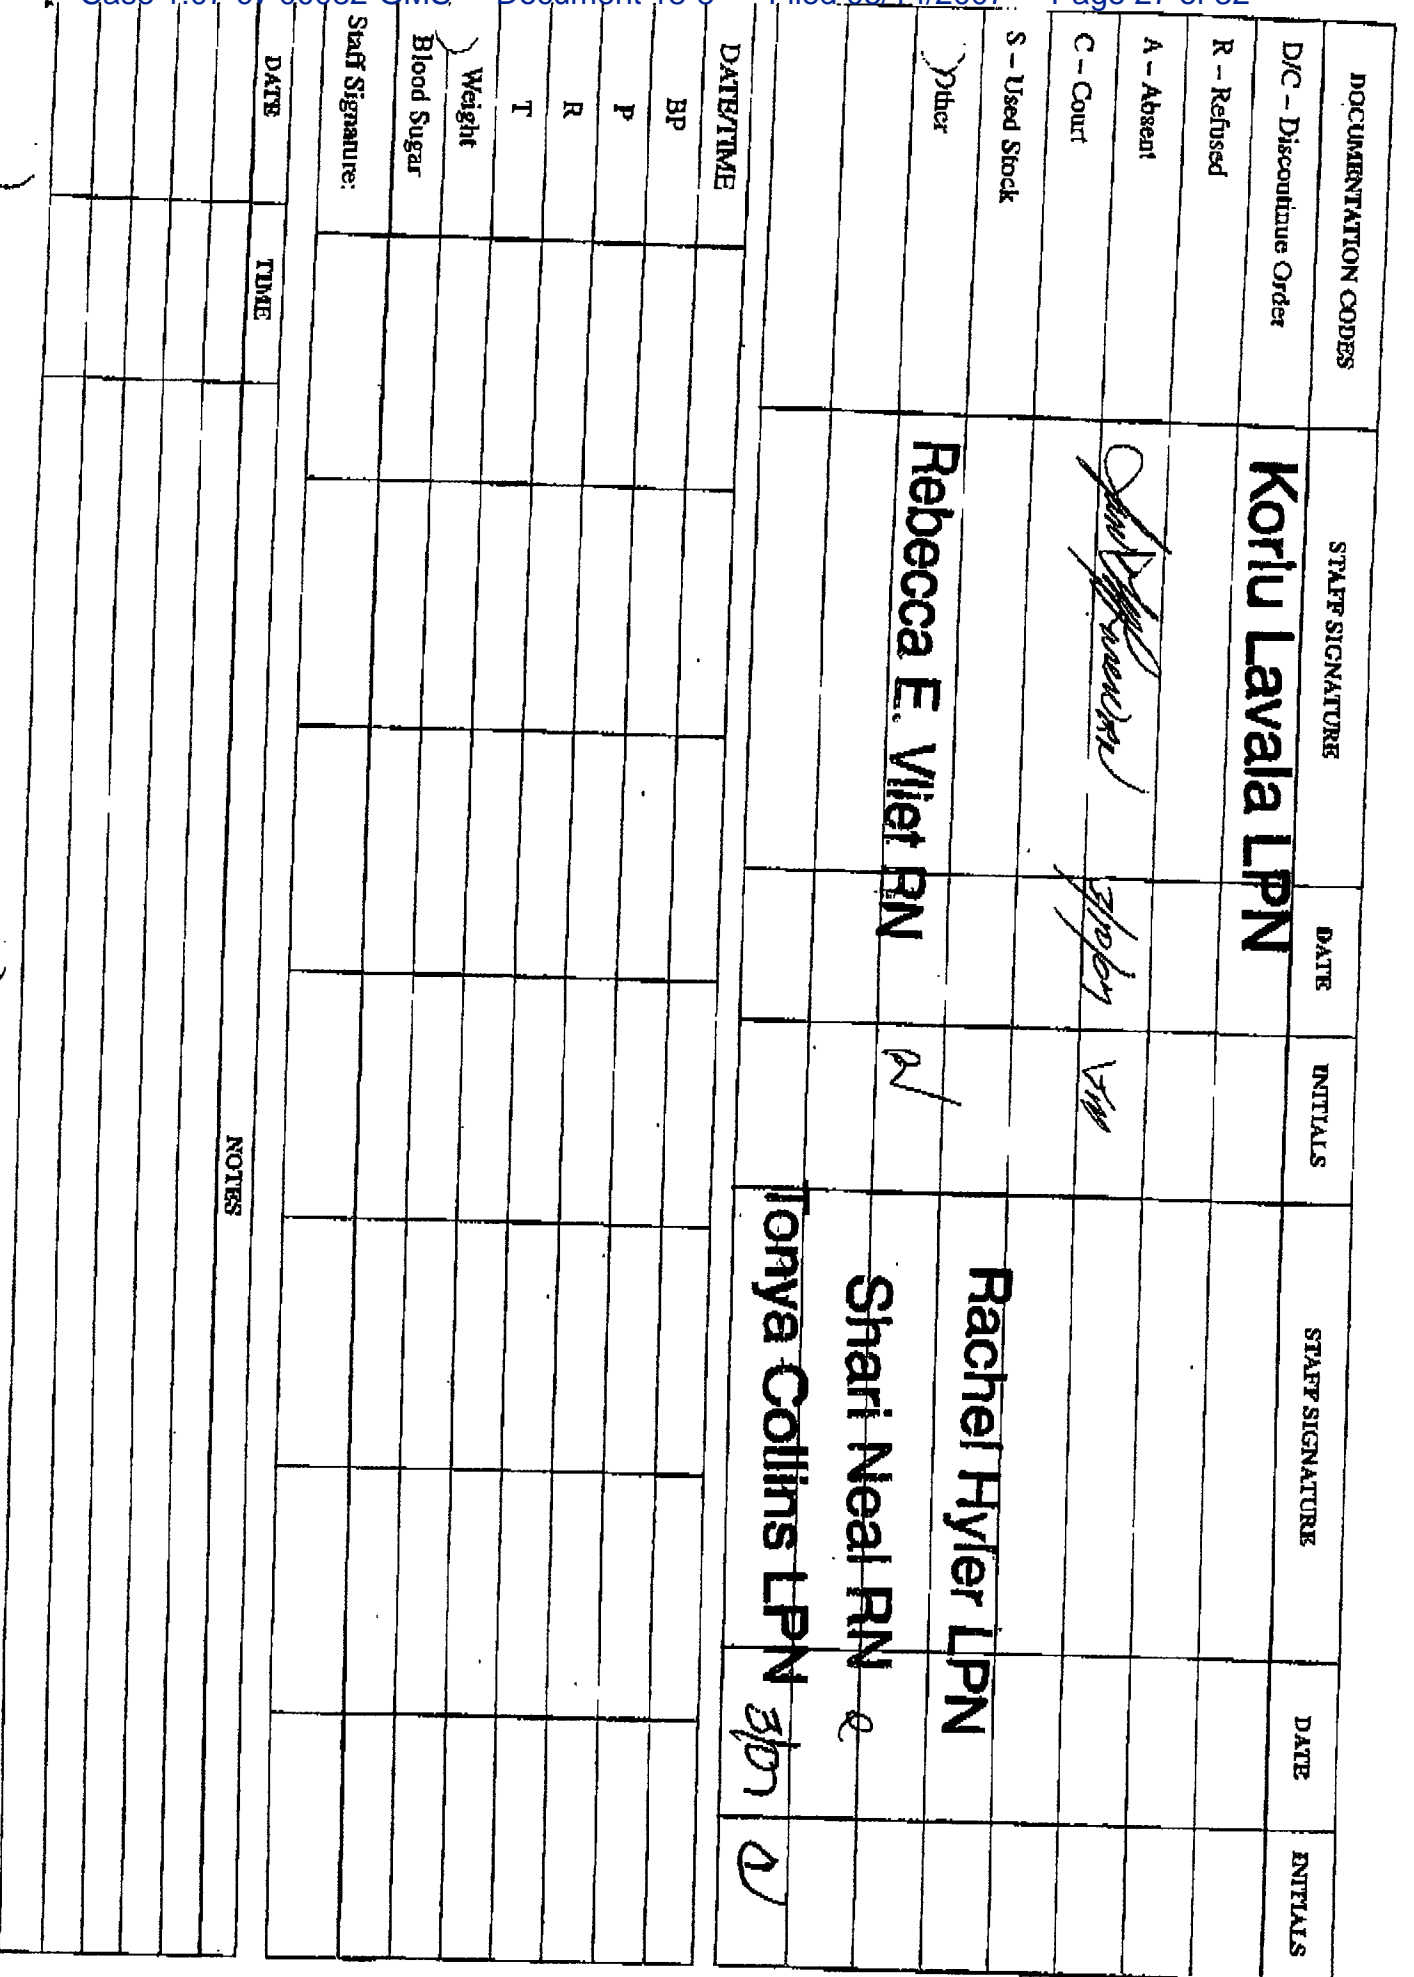 DOCUMENTATION CODES STAFF SIGNATURE DATE INITIALS STAFF SIGNATURE DATE INITIALS
D/C – Discontinue Order Koriu Lavala LPN
R – Refused
A – Absent
C – Court 3/10/07
S – Used Stock Rachel Hyler LPN
Other Rebecca E. Vliet RN
Shari Neal RN
Tonya Collins LPN 3/07
DATE/TIME
BP
P
R
T
Weight
Blood Sugar
Staff Signature:
DATE TIME NOTES